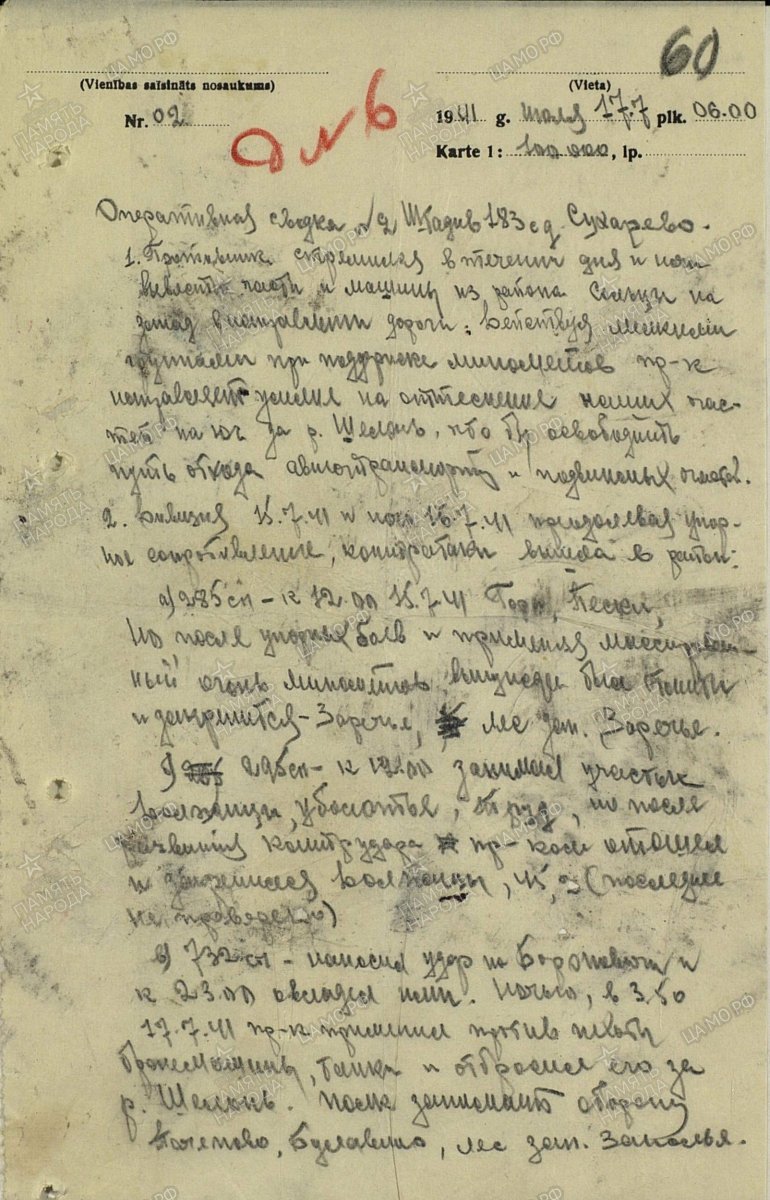 60
(Vienības saīsināts nosaukums)
(Vieta)
Nr. 02
Д N 6
1941 g. июля 17.7 plk. 06.00
Karte 1: 100 000, lp.
Оперативная сводка №2 Штадив 183 сд. Сухарево.
1. Противник стремился в течении дня и ночи
вывести части и машины из района Сольцы на
запад в направлении дороги; действуя мелкими
группами при поддержке минометов пр-к
направляет усилия на оттеснение наших час-
тей на юг за р. Шелонь, что бы освободить
путь отхода автотранспорту и подвижных частей.
2. Дивизия 15.7.41 и ночь 16.7.41 преодолевая упор-
ное сопротивление, контратаки вышла в район:
а) 285 сп – к 12.00 15.7.41 Пески,
но после упорных боев и применяя массирован-
ный огонь минометов была
и закрепится – Заречье, лес зап. Заречье.
295 сп – к 12.00 занимал участок
, Труд, но после
развития контрудара пр-ком отошел
и (последнее
не проверено)
в) 732 сп – наносил удар на и
к 23.00 овладел ими. Ночью, в 3.50
17.7.41 пр-к применил против пехоты
бронемашины, танки и отбросил его за
р. Шелонь. Полк занимает оборону
лес зап. Заполья.
ПАМЯТЬ НАРОДА
ЦАМО РФ